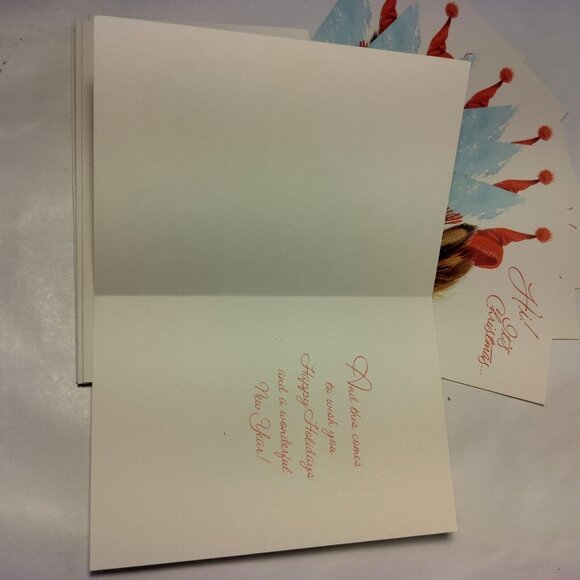 Hi!
It's
Christmas...
And this comes
to wish you
Happy Holidays
and a wonderful
New Year!